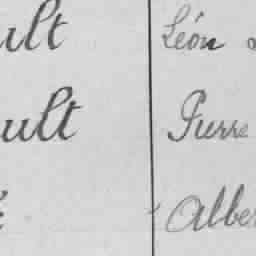 ult Léon
ult Pierre
é Alber